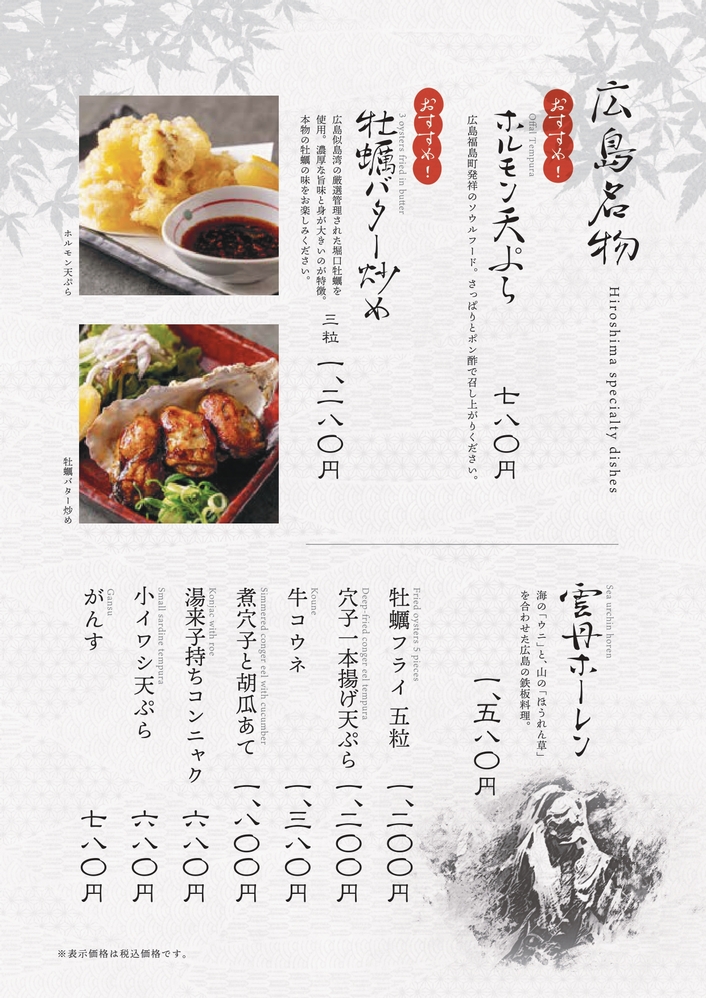 広島名物
Hiroshima specialty dishes
おすすめ！
Offal Tempura
ホルモン天ぷら
広島福島町発祥のソウルフード。さっぱりとポン酢で召し上がりください。
七八〇円
おすすめ！
3 oysters fried in butter
牡蠣バター炒め
広島似島湾の厳選管理された堀口牡蠣を
使用。濃厚な旨味と身が大きいのが特徴。
本物の牡蠣の味をお楽しみください。
三粒 一、二八〇円
ホルモン天ぷら
牡蠣バター炒め
Sea urchin horen
雲丹ホーレン
海の「ウニ」と、山の「ほうれん草」
を合わせた広島の鉄板料理。
一、五八〇円
Fried oysters 5 pieces
牡蠣フライ 五粒 一、二〇〇円
Deep-fried conger eel tempura
穴子一本揚げ天ぷら 一、二〇〇円
Koune
牛コウネ 一、三八〇円
Simmered conger eel with cucumber
煮穴子と胡瓜あて 一、八〇〇円
Konjac with roe
湯来子持ちコンニャク 六八〇円
Small sardine tempura
小イワシ天ぷら 六八〇円
Gansu
がんす 七八〇円
※表示価格は税込価格です。